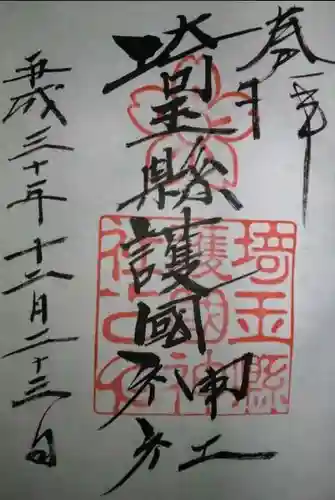 奉拝
埼玉縣護國神社
平成三十年十二月二十三日
埼玉縣
護國神
社之印